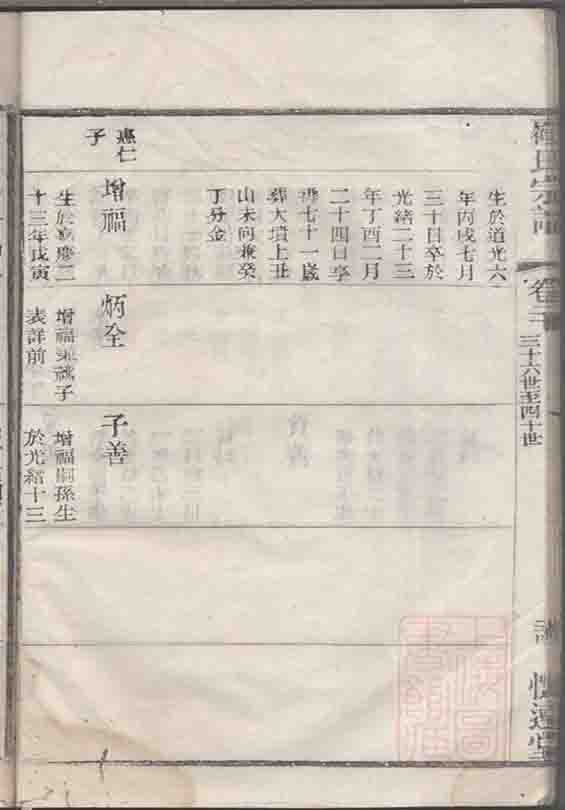 氏宗譜
卷二
三十六世至四十世
生於道光六
年丙戌七月
三十日卒於
光緒二十三
年丁酉二月
二十四日享
壽七十一歲
葬大墳上丑
山未向兼癸
丁分金
惠仁
子
增福
生於嘉慶二
十三年戊寅
炳全
增福兼祧子
表詳前
子善
增福嗣孫生
於光緒十三